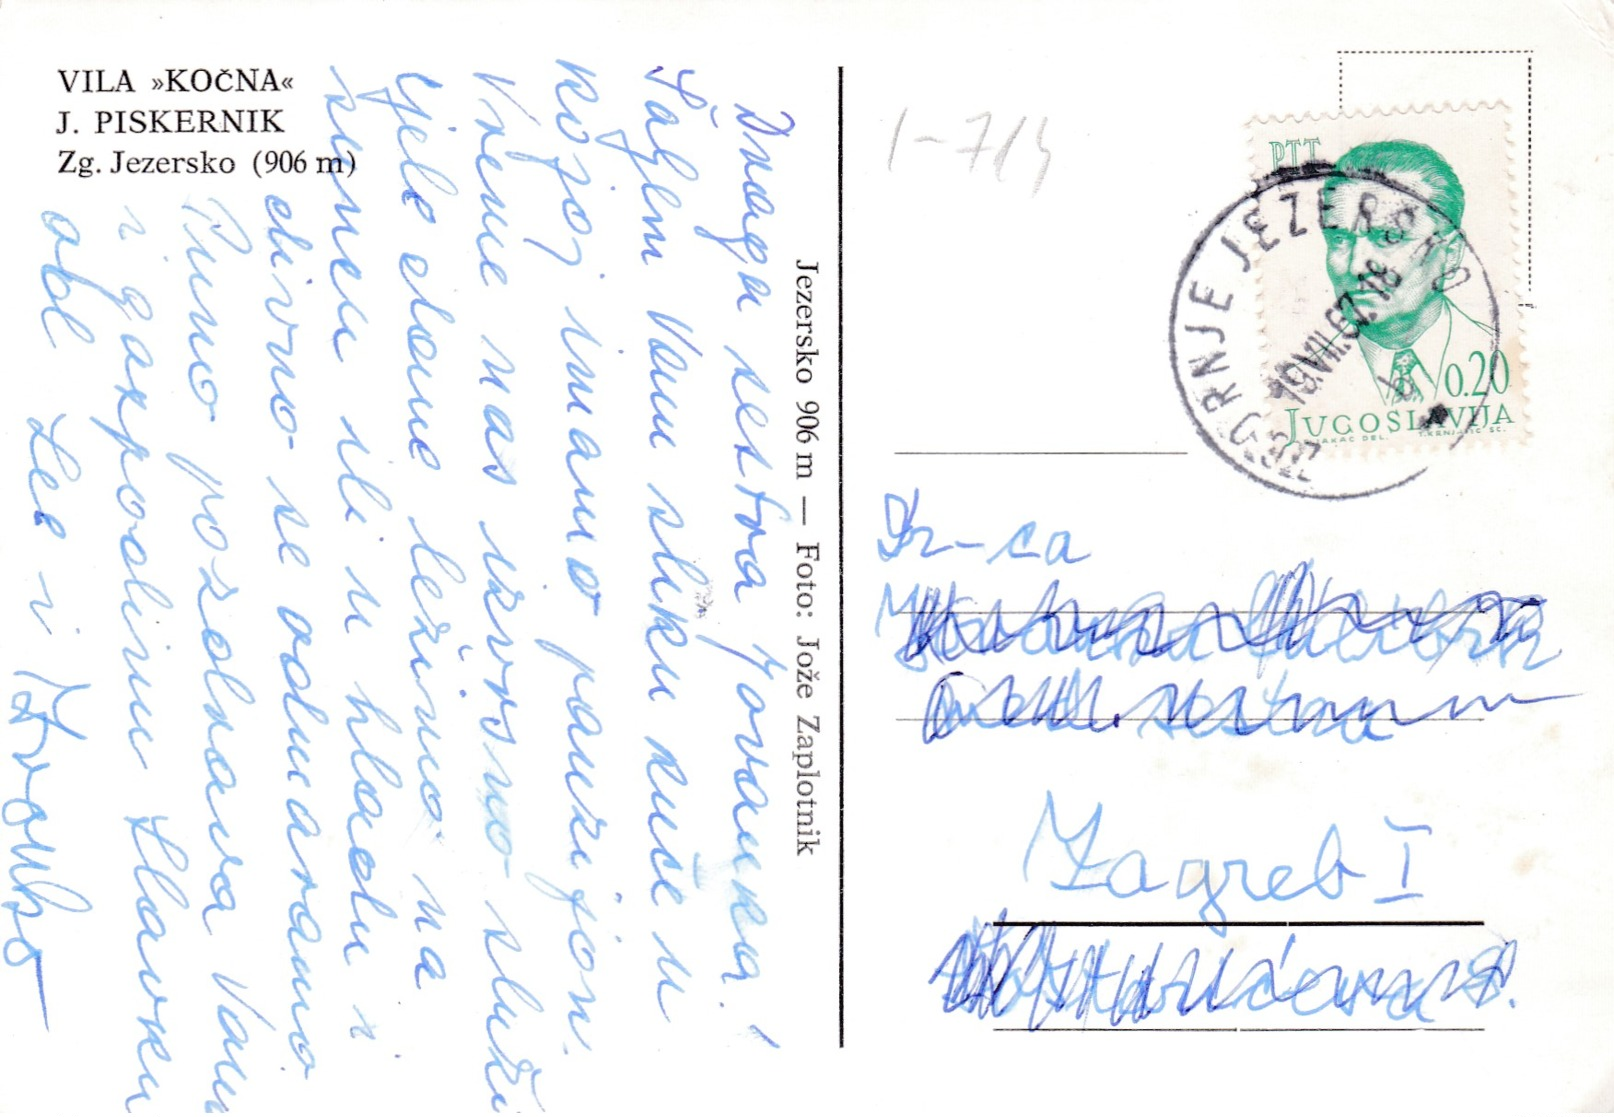 VILA »KOČNA«
J. PISKERNIK
Zg. Jezersko (906 m)
Draga sestra Jovanka!
Šaljem Vam sliku kuće u
kojoj imamo pansijon.
Vreme nas izvrsno služi
cijele dane ležimo na
suncu ili u hladu i
divno se odmaramo
Puno pozdrava Vam
i gospodinu Slavku
od Lee i
Jezersko 906 m — Foto: Jože Zaplotnik
1-714
PTT
0.20
JUGOSLAVIJA
JAKAC DEL.
ZGORNJE JEZERSKO
19.VII.67.18
b
Dr-ca
Zagreb I